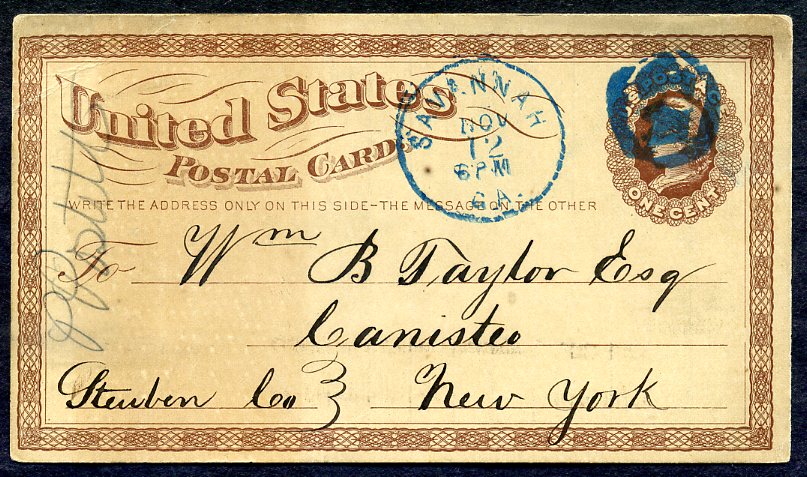 United States
Postal Card
WRITE THE ADDRESS ONLY ON THIS SIDE–THE MESSAGE ON THE OTHER
SAVANNAH
NOV
12
6 PM
GA.
ONE CENT
To Wm B Taylor Esq
Canisteo
Steuben Co New York